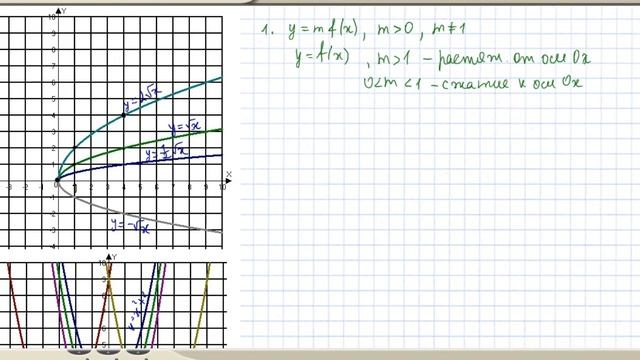 1. y = m f(x), m > 0, m ≠ 1
y = f(x), m > 1 – растяж. от оси Ox
0 < m < 1 – сжатие к оси Ox
Y
10
9
8
7
6
5
4
3
2
1
0
-1
-2
-3
-4
-3 -2 -1 1 2 3 4 5 6 7 8 9 10
X
y=2√x
y=√x
y=½√x
y=-√x
Y
10